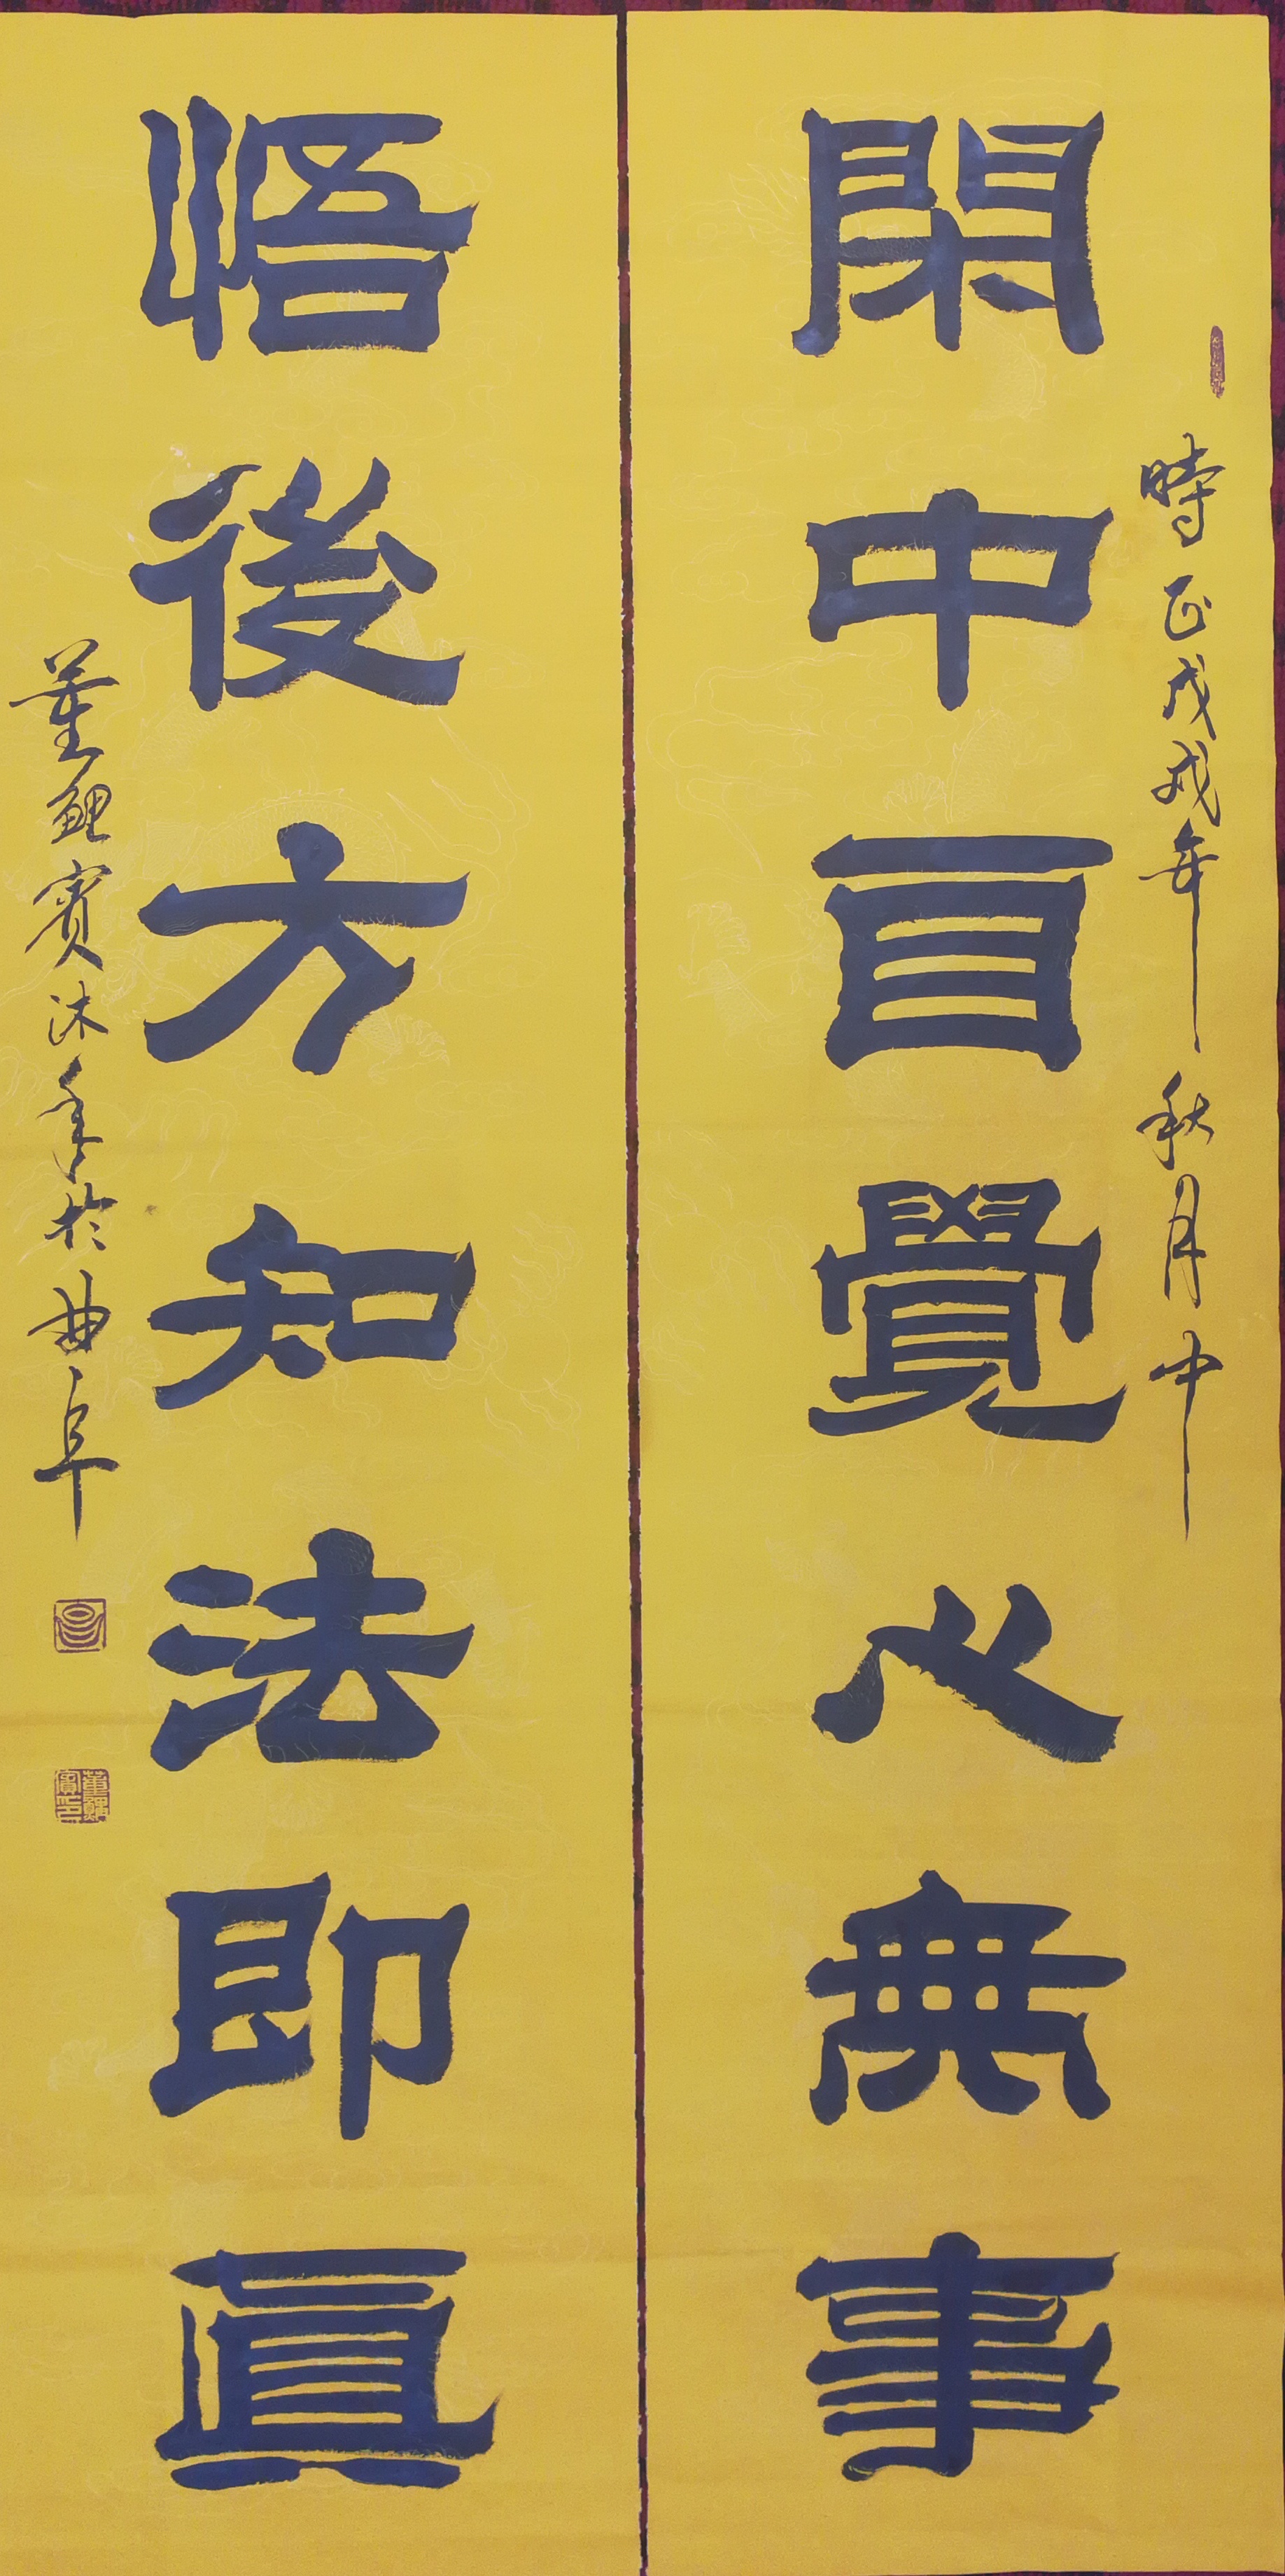 時正戊戌年秋月中
閑中自覺心無事
悟後方知法即真
董鯤賓沐手於曲阜